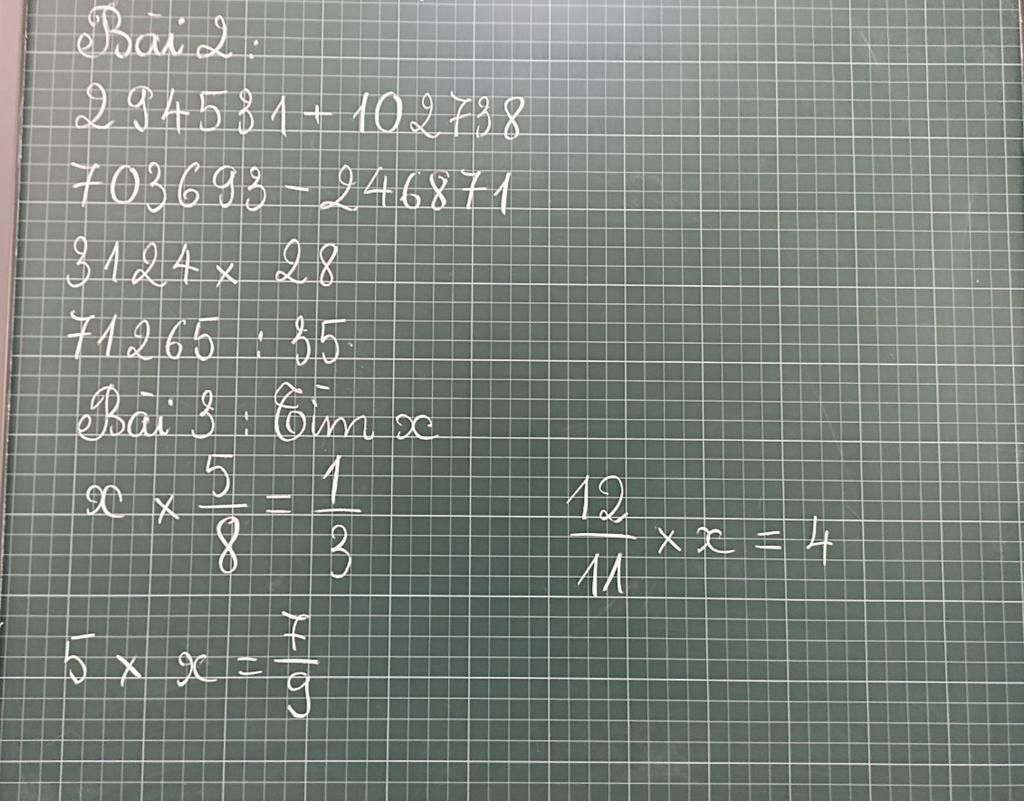 Bài 2:
294531 + 102738
703693 - 246871
3124 × 28
71265 : 35
Bài 3 : Tìm x
x × 5/8 = 1/3
12/11 × x = 4
5 × x = 7/9